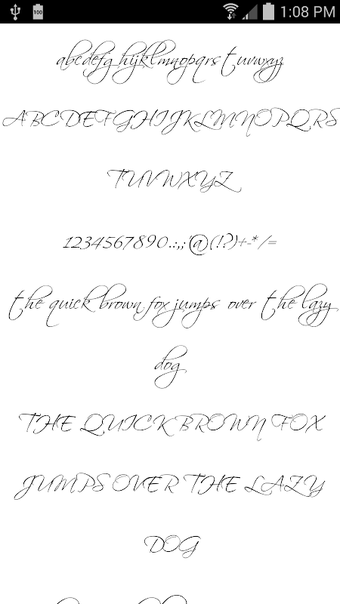 100
1:08 PM
abcdefg hijklmnopqrs tuvwxyz
ABCDEFGHIJKLMNOPQRS
TUVWXYZ
1234567890.:,; @(!?)+-*/=
the quick brown fox jumps over the lazy
dog
THE QUICK BROWN FOX
JUMPS OVER THE LAZY
DOG